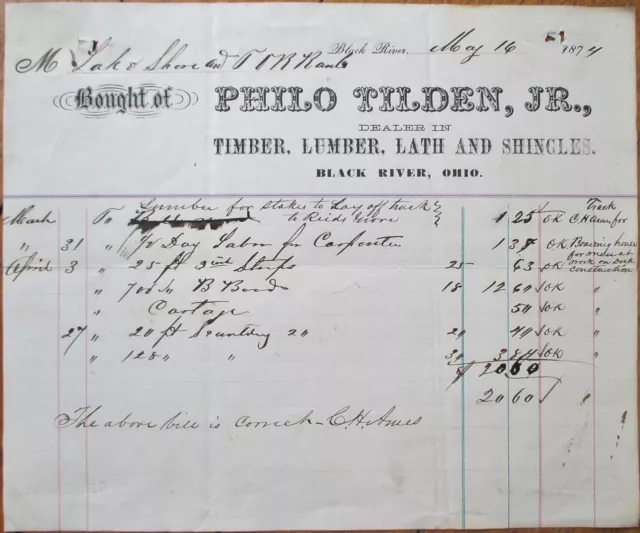 Black River, May 16 1874
M Lake Shore and T O RR
Bought of PHILO TILDEN, JR.,
DEALER IN
TIMBER, LUMBER, LATH AND SHINGLES.
BLACK RIVER, OHIO.
March To Lumber for stakes to Lay off track to Reids 1 25 OK Track
" 31 " 1/2 Day Labor for Carpenter 1 37 OK Boarding house
April 3 " 25 ft Strips 25 63 OK for men at work on Dock construction
" 700 " B Bords 18 12 60 OK "
" Cartage 50 OK "
27 " 20 ft Scantling 20 40 OK "
" 128 " " 30 3 84 OK "
$ 20 60
20 60 "
The above bill is correct - C.H. Ames